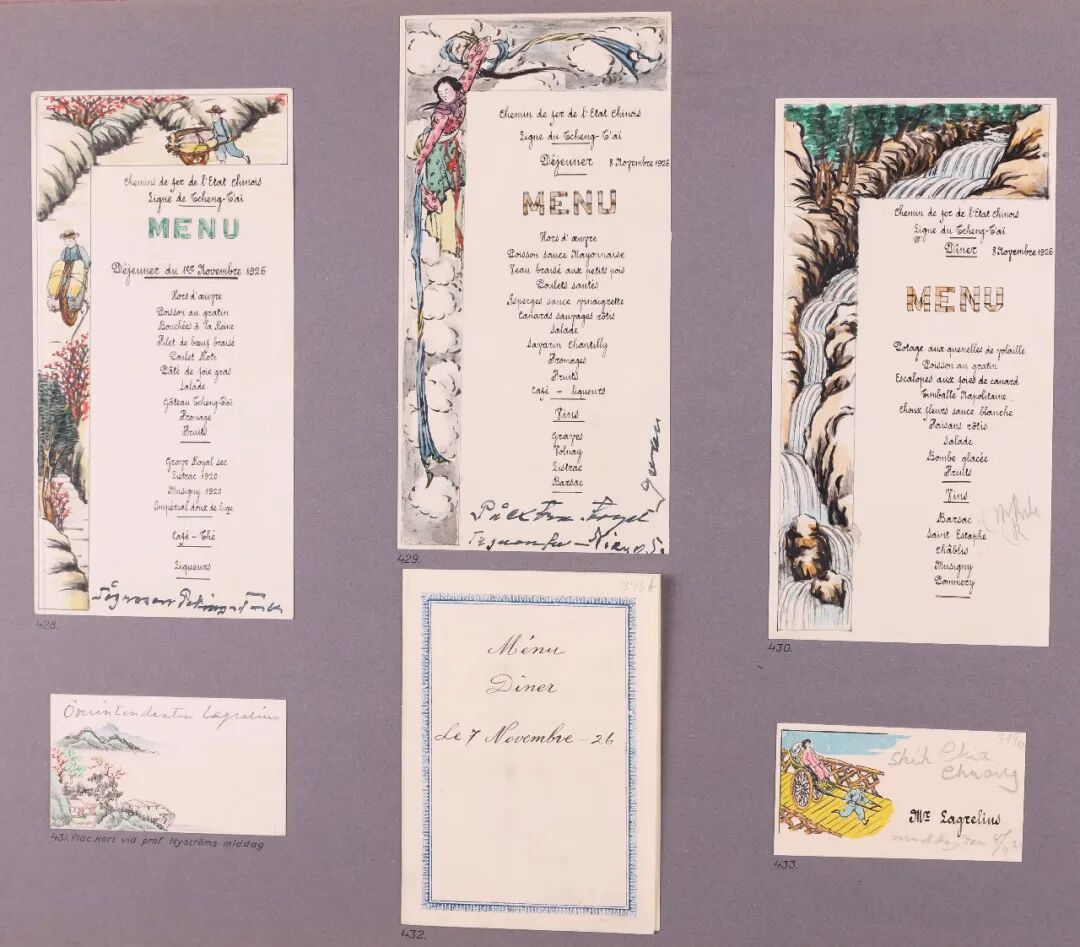 Chemins de fer de l'Etat Chinois
Ligne de Tcheng-T'aï
MENU
Déjeuner du 1er Novembre 1926
Hors d'œuvre
Poisson au gratin
Bouchées à la Reine
Filet de bœuf braisé
Poulet Rôti
Pâté de foie gras
Salade
Gâteau Tcheng-T'aï
Fromage
Fruits
Royal sec
Listrac 1920
Musigny 1920
Impérial doux de
Café - Thé
Liqueurs
428.
Chemin de fer de l'Etat Chinois
Ligne du Tcheng-T'aï
Déjeuner 8 Novembre 1926
MENU
Hors d'œuvre
Poisson sauce Mayonnaise
Veau braisé aux petits pois
Poulets sautés
Asperges sauce vinaigrette
Canards sauvages rôtis
Salade
Savarin Chantilly
Fromages
Fruits
Café - liqueurs
Vins
Graves
Volnay
Listrac
Barsac
429.
Chemin de fer de l'Etat Chinois
Ligne du Tcheng-T'aï
Dîner 8 Novembre 1926
MENU
Potage aux quenelles de volaille
Poisson au gratin
Escalopes aux foies de canard
Timballe Napolitaine
Choux fleurs sauce blanche
Faisans rôtis
Salade
Bombe glacée
Fruits
Vins
Barsac
Saint Estèphe
Châblis
Musigny
Pommery
430.
Överintendenten Lagrelius
431. Plac.kort vid prof Nyströms middag
Ménu
Dîner
Le 7 Novembre - 26
432.
Shih Chia
Chuang
Mr Lagrelius
433.